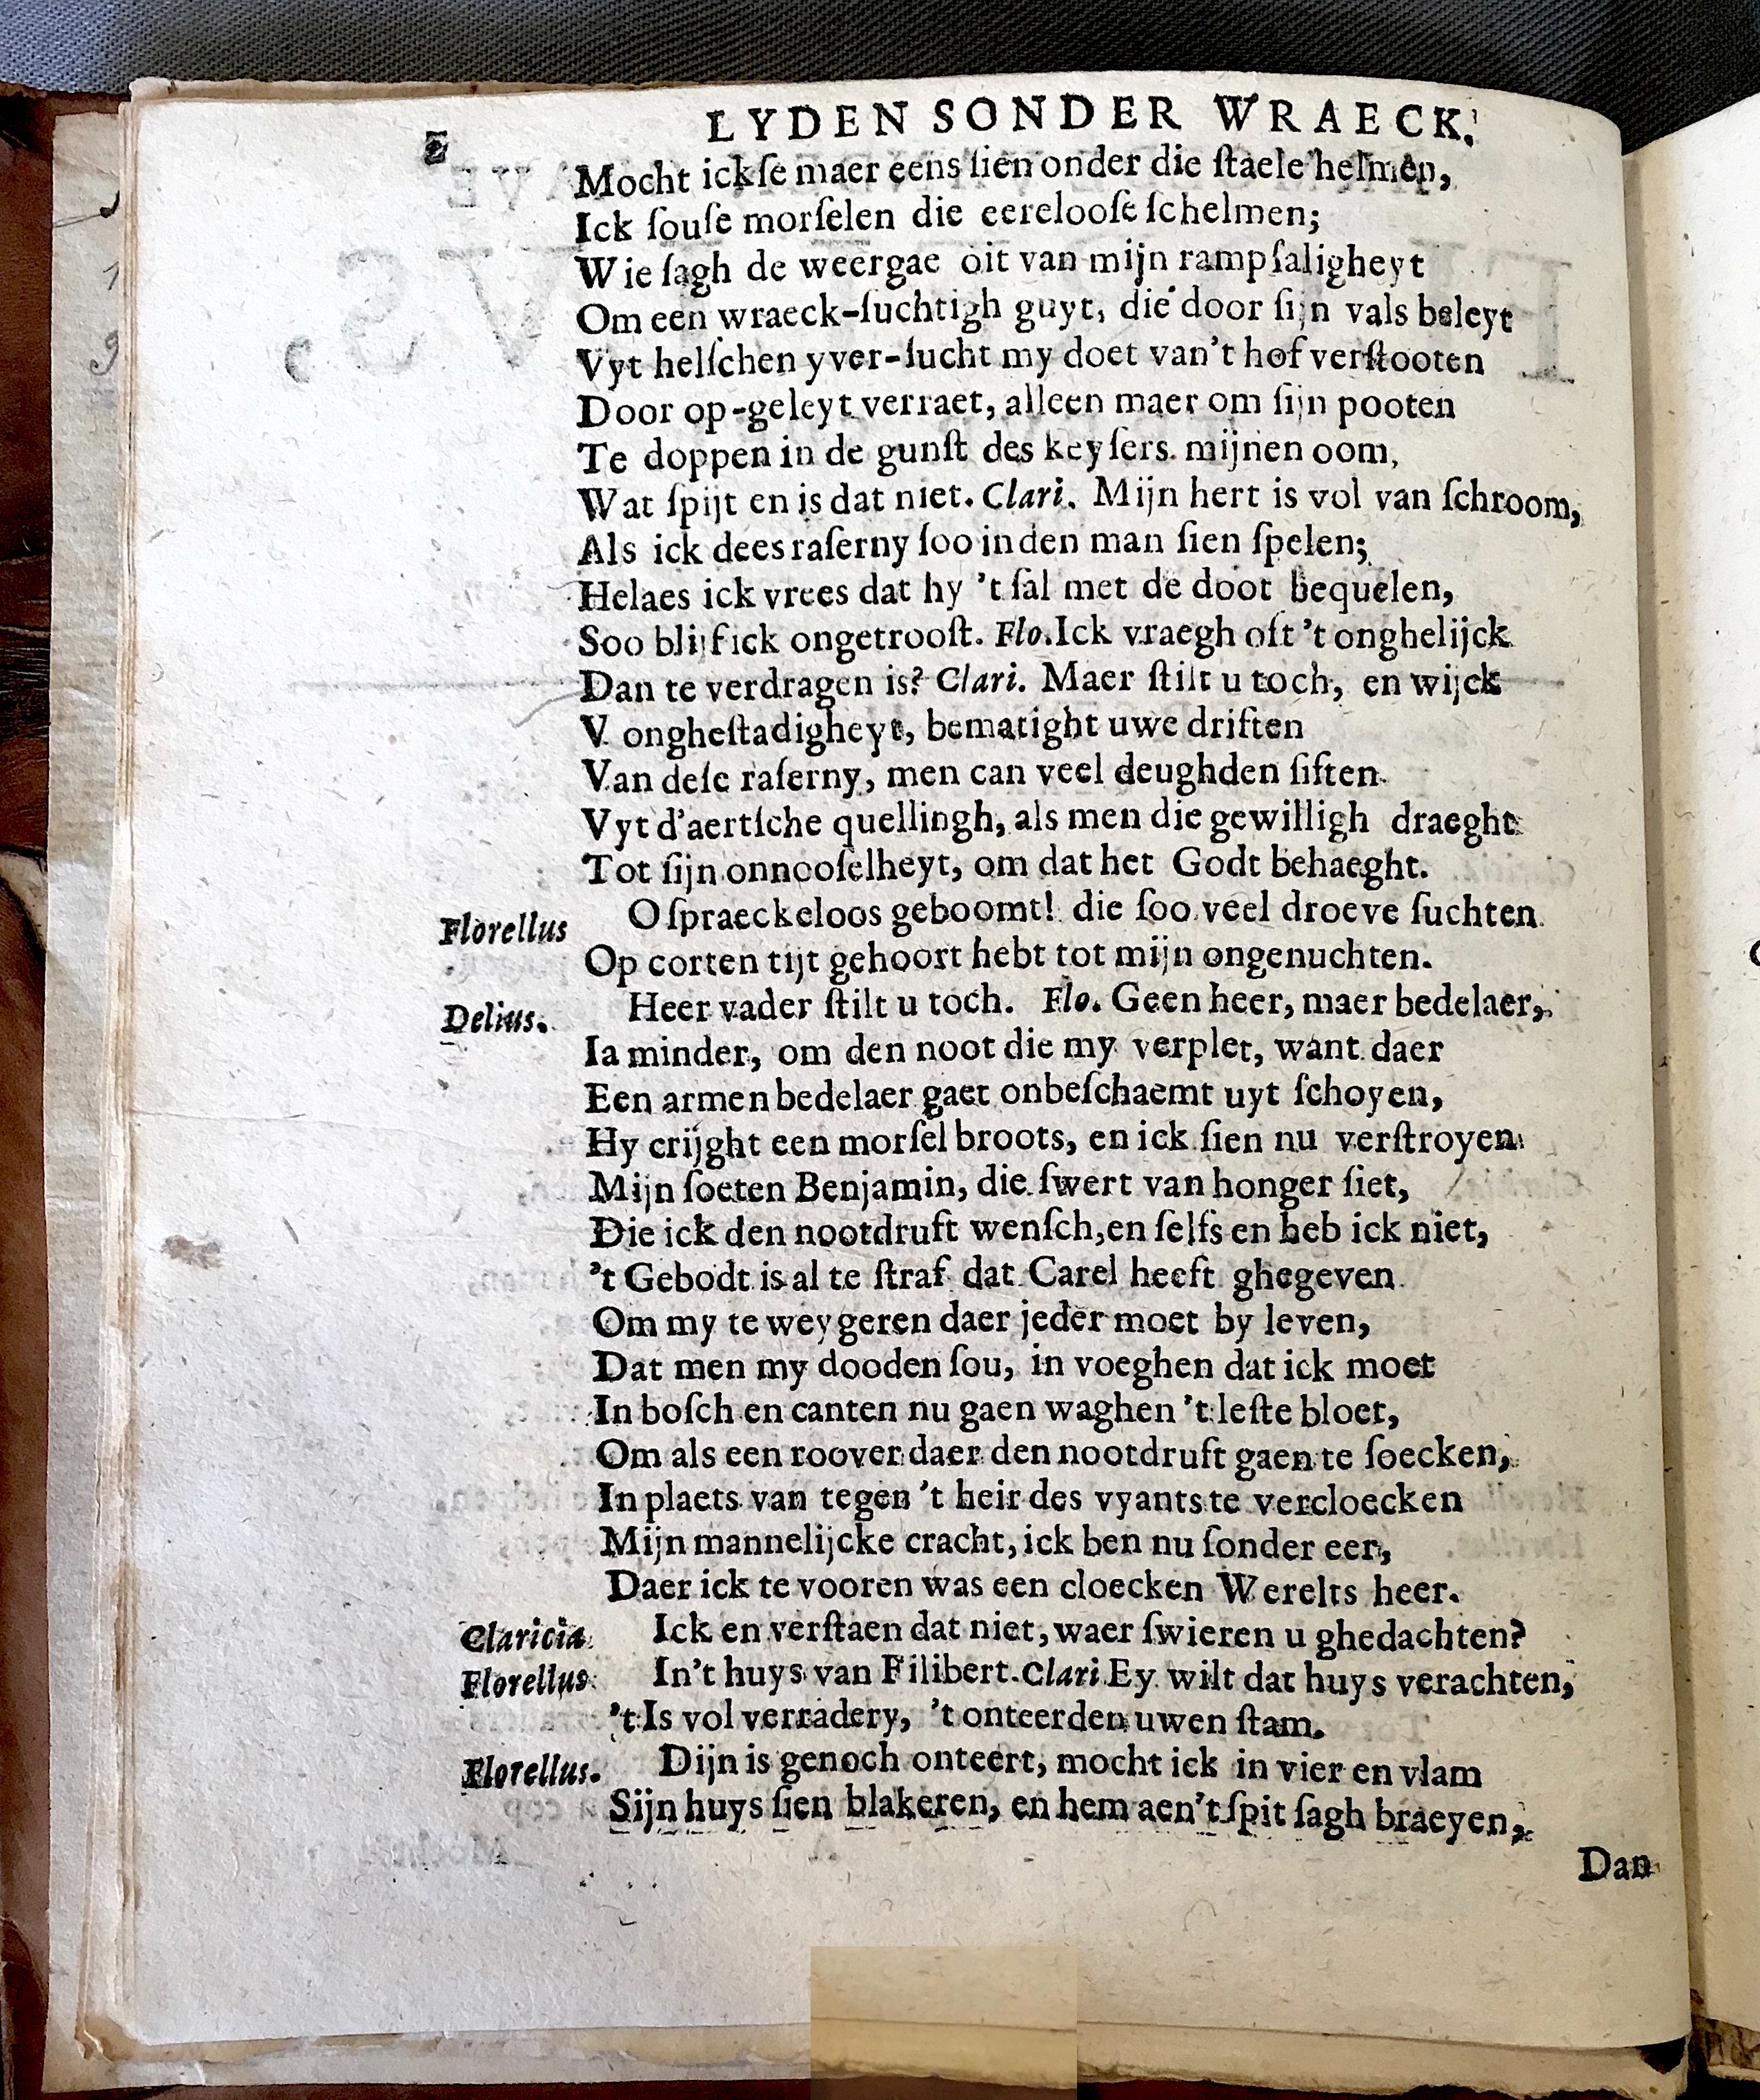 2 LYDEN SONDER WRAECK.
Mocht ickſe maer eens ſien onder die ſtaele helmen,
Ick ſouſe morſelen die eerelooſe ſchelmen;
Wie ſagh de weergae oit van mijn rampſaligheyt
Om een wraeck-ſuchtigh guyt, die door ſijn vals beleyt
Vyt helſchen yver-ſucht my doet van't hof verſtooten
Door op-geleyt verraet, alleen maer om ſijn pooten
Te doppen in de gunſt des keyſers. mijnen oom,
Wat ſpijt en is dat niet. Clari. Mijn hert is vol van ſchroom,
Als ick dees raſerny ſoo in den man ſien ſpelen;
Helaes ick vrees dat hy 't ſal met de doot bequelen,
Soo blijf ick ongetrooſt. Flo. Ick vraegh oft 't onghelijck
Dan te verdragen is? Clari. Maer ſtilt u toch, en wijck
V ongheſtadigheyt, bematight uwe driften
Van deſe raſerny, men can veel deughden ſiften
Vyt d'aertſche quellingh, als men die gewilligh draeght
Tot ſijn onnooſelheyt, om dat het Godt behaeght.
Florellus O ſpraeckeloos geboomt! die ſoo veel droeve ſuchten
Op corten tijt gehoort hebt tot mijn ongenuchten.
Delius. Heer vader ſtilt u toch. Flo. Geen heer, maer bedelaer,
Ia minder, om den noot die my verplet, want daer
Een armen bedelaer gaet onbeſchaemt uyt ſchoyen,
Hy crijght een morſel broots, en ick ſien nu verſtroyen
Mijn ſoeten Benjamin, die ſwert van honger ſiet,
Die ick den nootdruft wenſch, en ſelfs en heb ick niet,
't Gebodt is al te ſtraf dat Carel heeft ghegeven
Om my te weygeren daer jeder moet by leven,
Dat men my dooden ſou, in voeghen dat ick moet
In boſch en canten nu gaen waghen 't leſte bloet,
Om als een roover daer den nootdruft gaen te ſoecken,
In plaets van tegen 't heir des vyants te vercloecken
Mijn mannelijcke cracht, ick ben nu ſonder eer,
Daer ick te vooren was een cloecken Werelts heer.
Claricia Ick en verſtaen dat niet, waer ſwieren u ghedachten?
Florellus In't huys van Filibert. Clari Ey wilt dat huys verachten,
't Is vol verradery, 't onteerden uwen ſtam.
Florellus. Dijn is genoch onteert, mocht ick in vier en vlam
Sijn huys ſien blakeren, en hem aen't ſpit ſagh braeyen,
Dan